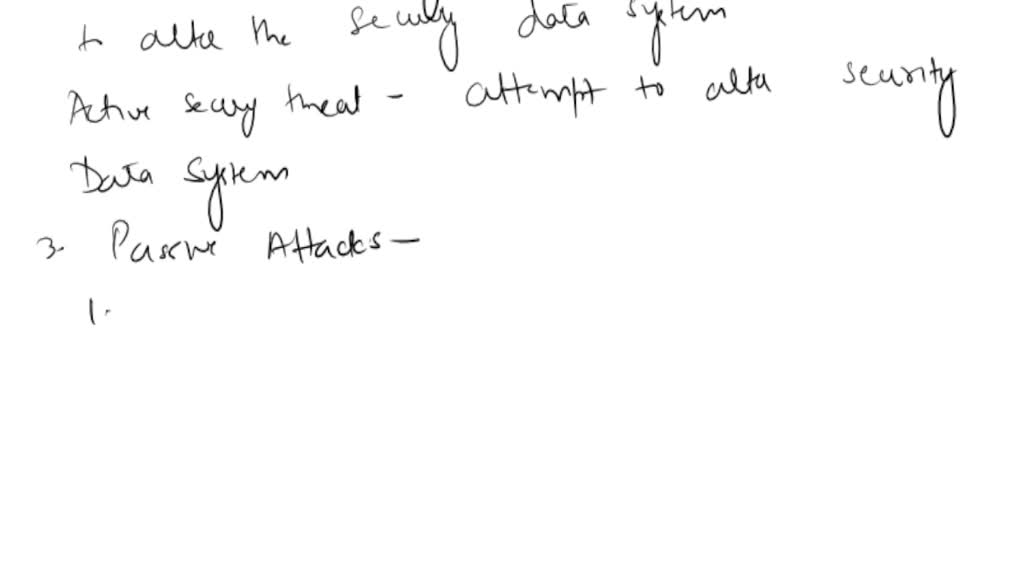 to alta the Secuity data system
Active secuy threat - attempt to alta security
Data System
3. Passive Attacks -
1.